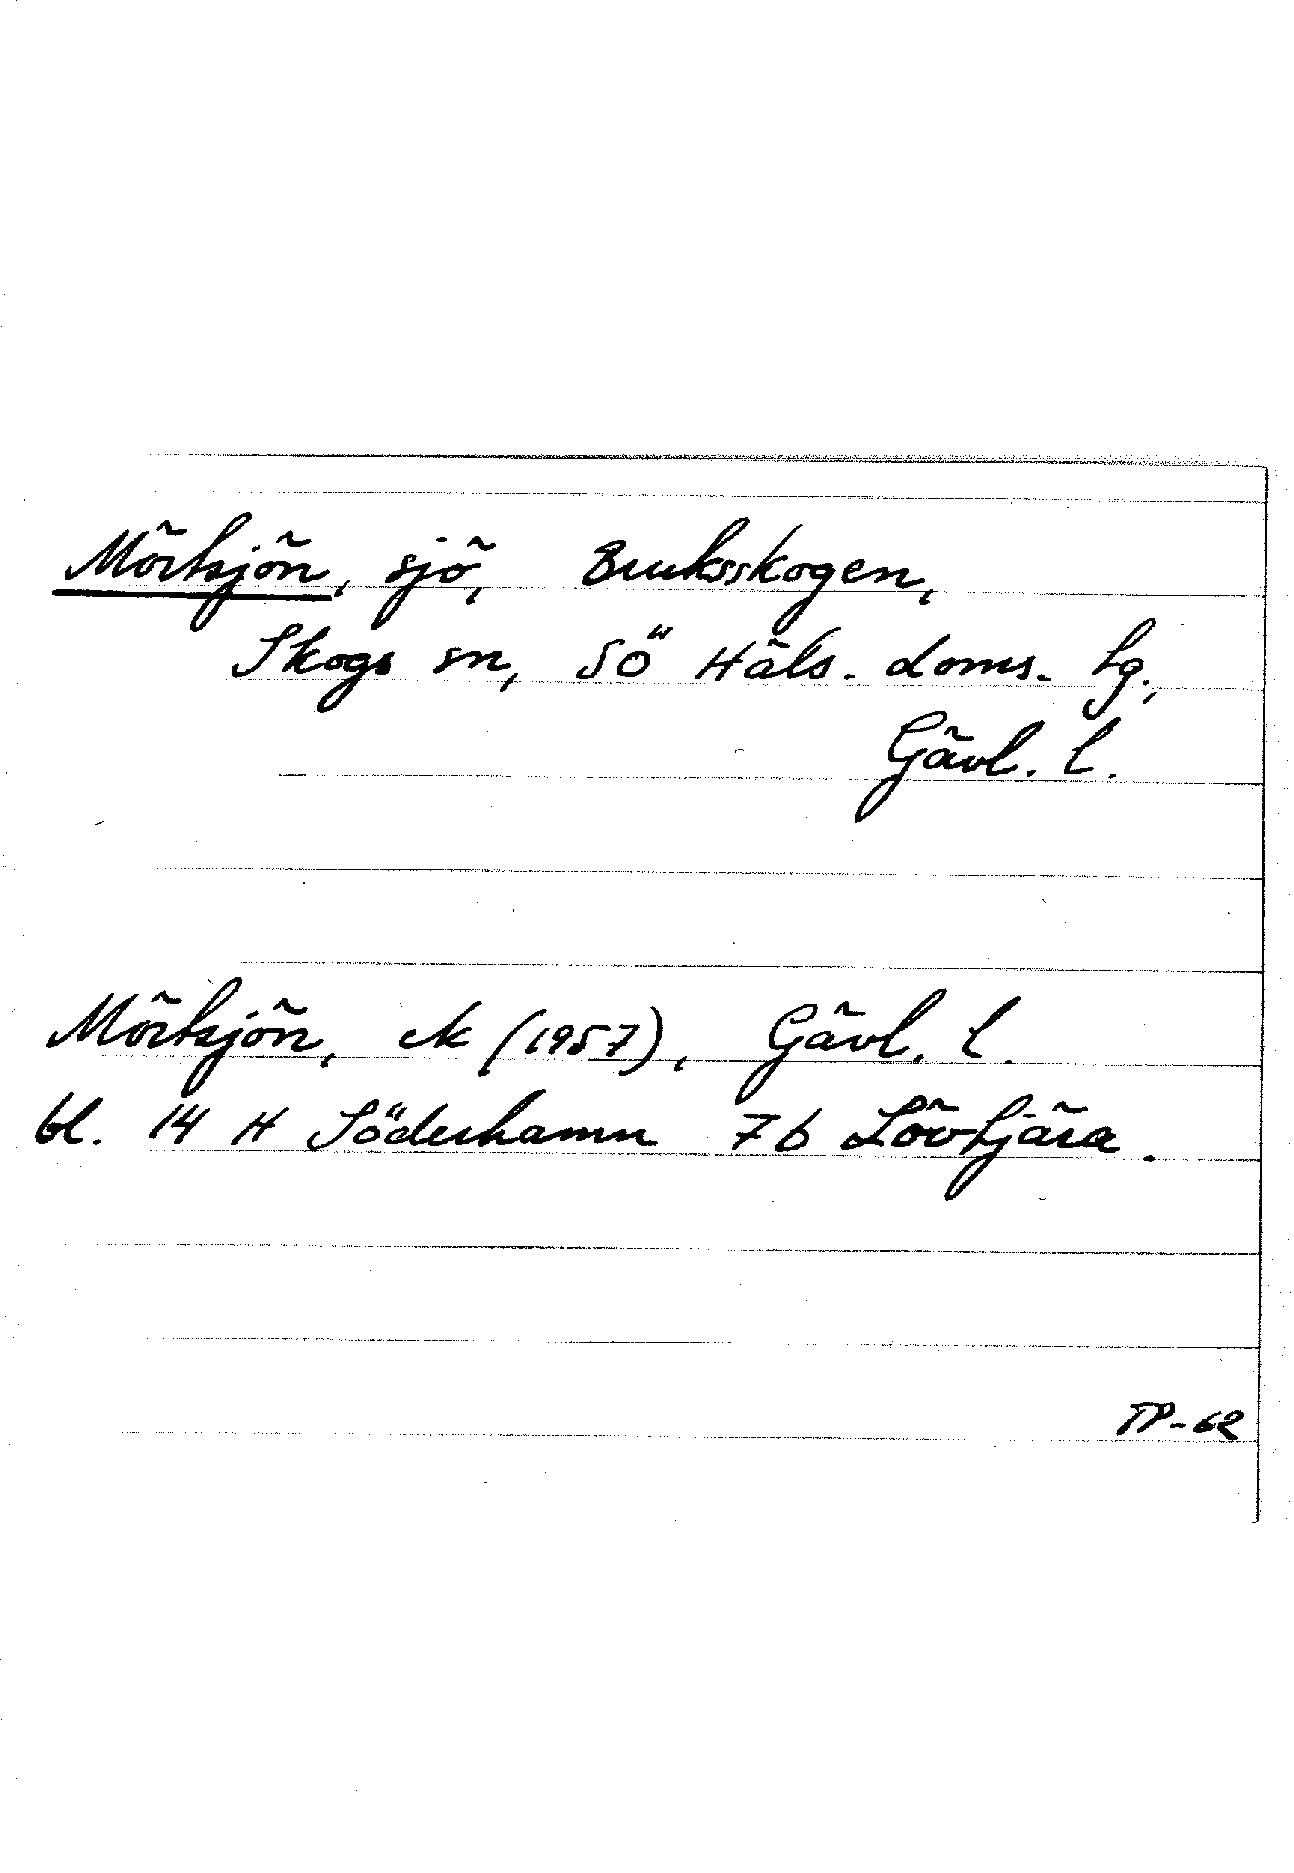 Mörksjön, sjö, Bruksskogen,
Skogs sn, Sö Häls. doms. hg.,
Gävl. l.
Mörksjön, ek (1957), Gävl. l.
bl. 14 H Söderhamn 7b Lövtjära.
TP-62